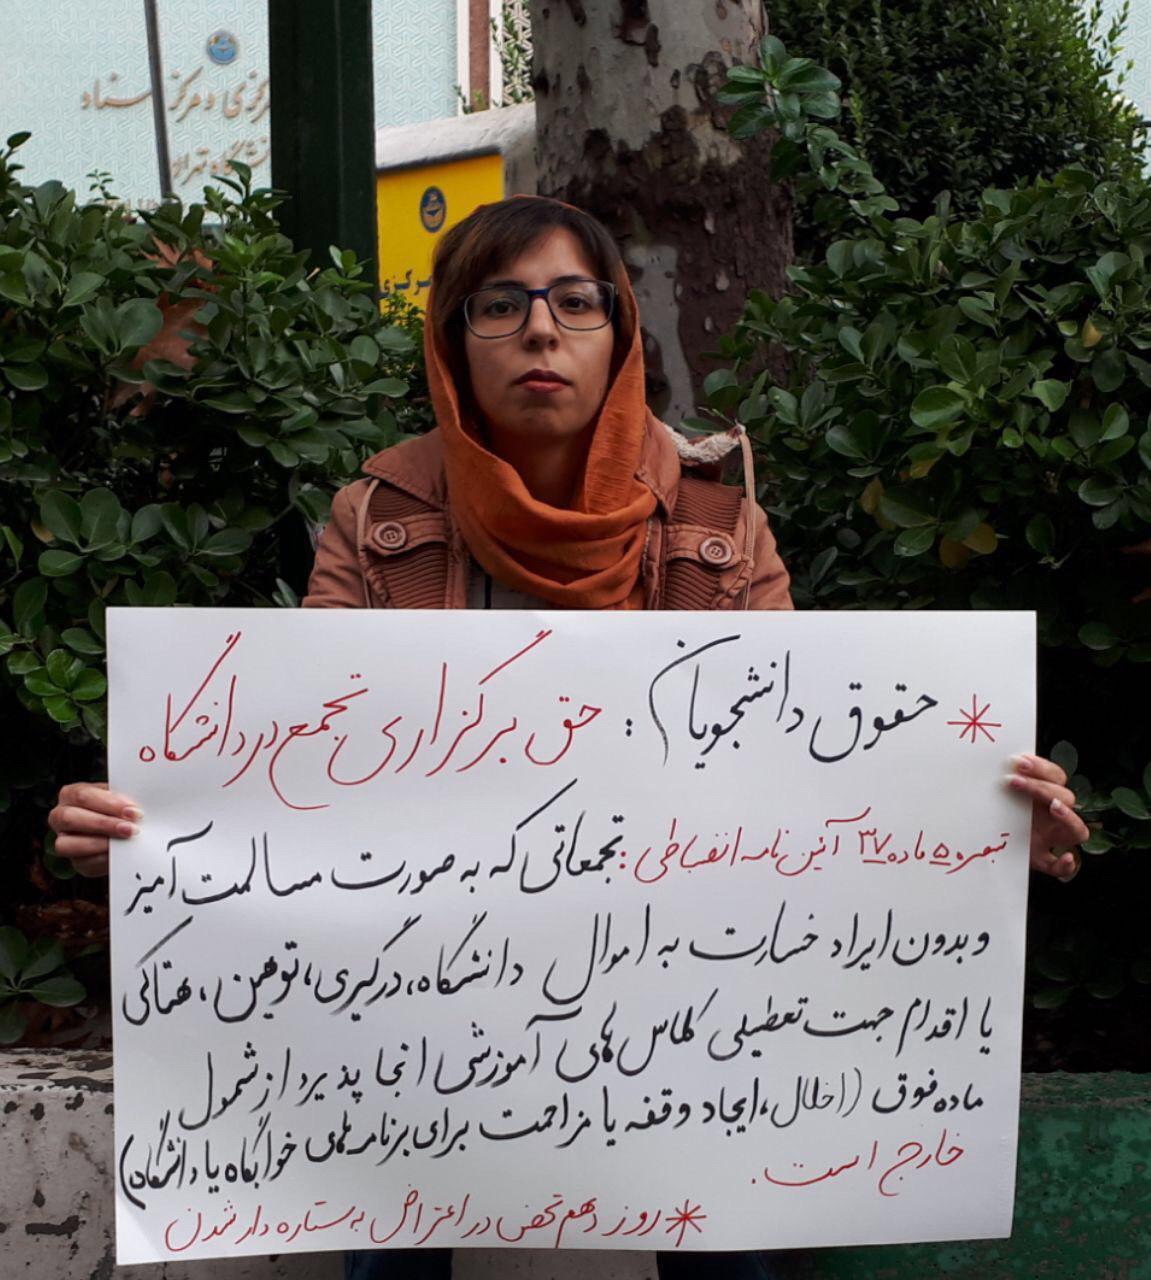 مرکزی و مرکز اسناد
دانشگاه تهران
مرکزی
* حقوق دانشجویان : حق برگزاری تجمع در دانشگاه
تبصره ۵ ماده ۳۷ آئین نامه انضباطی : تجمعاتی که به صورت مسالمت آمیز
و بدون ایراد خسارت به اموال دانشگاه، درگیری، توهین، هتاکی
یا اقدام جهت تعطیلی کلاس های آموزشی انجا پذیرد از شمول
ماده فوق (اخلال، ایجاد وقفه یا مزاحمت برای برنامه های خوابگاه یا دانشگاه)
خارج است.
* روز دهم تحصن در اعتراض به ستاره دار شدن